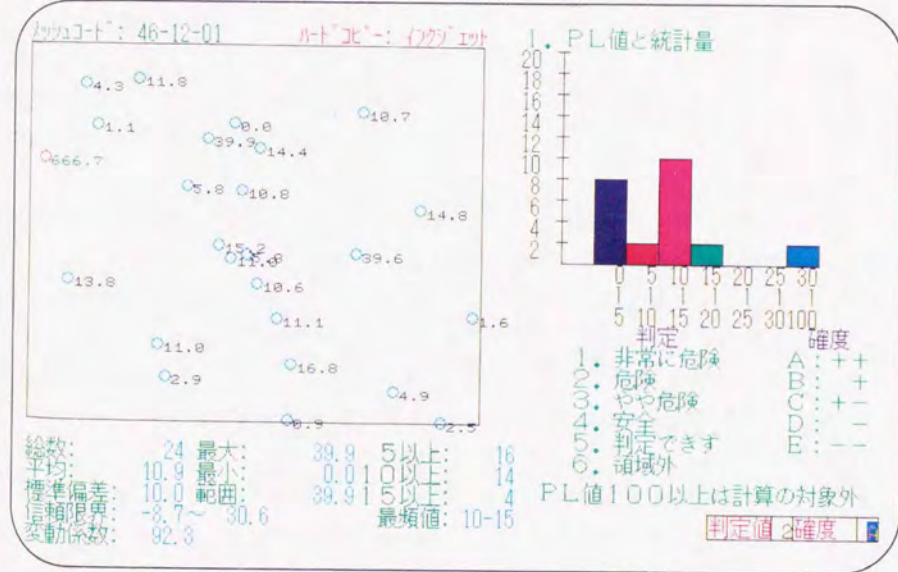 メッシュコード: 46-12-01
ハードコピー: インクジェット
4.3
11.8
10.7
1.1
0.0
39.9
14.4
666.7
5.8
10.8
14.8
15.2
11.0
39.6
13.8
10.6
11.1
1.6
11.0
16.8
2.9
4.9
0.9
2.5
総数: 24 最大: 39.9 5以上: 16
平均: 10.9 最小: 0.0 10以上: 14
標準偏差: 10.0 範囲: 39.9 15以上: 4
信頼限界: -8.7~ 30.6 最頻値: 10-15
変動係数: 92.3
1. PL値と統計量
20
18
16
14
12
10
8
6
4
2
0 5 10 15 20 25 30
5 10 15 20 25 30 100
判定 確度
1. 非常に危険 A:++
2. 危険 B: +
3. やや危険 C:+-
4. 安全 D: -
5. 判定できず E:--
6. 領域外
PL値100以上は計算の対象外
判定値 2 確度